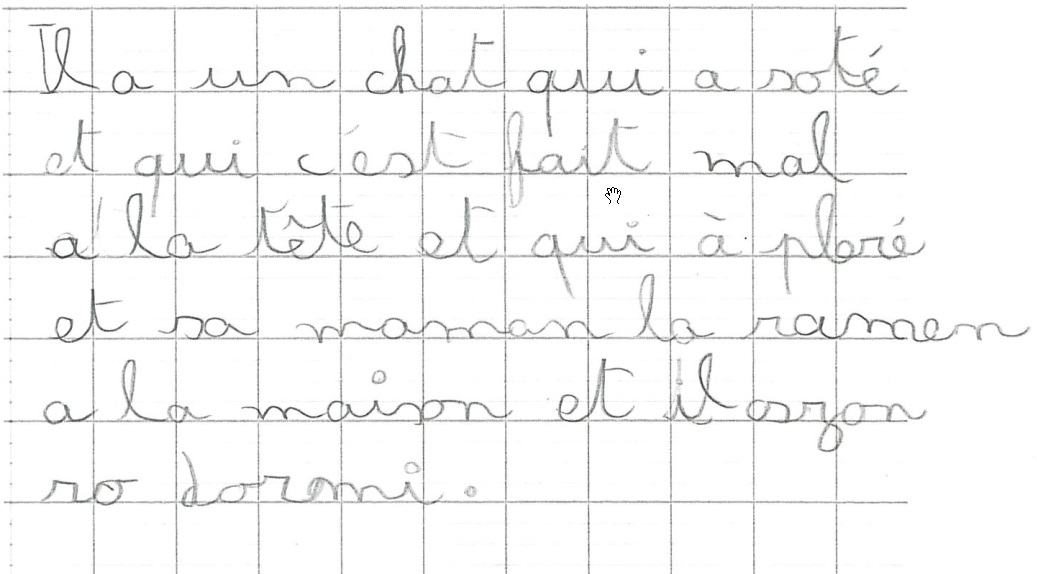 Il a un chat qui a soté
et qui c'est fait mal
a la tête et qui à ploré
et sa maman la ramen
a la maison et il
ro dormi.